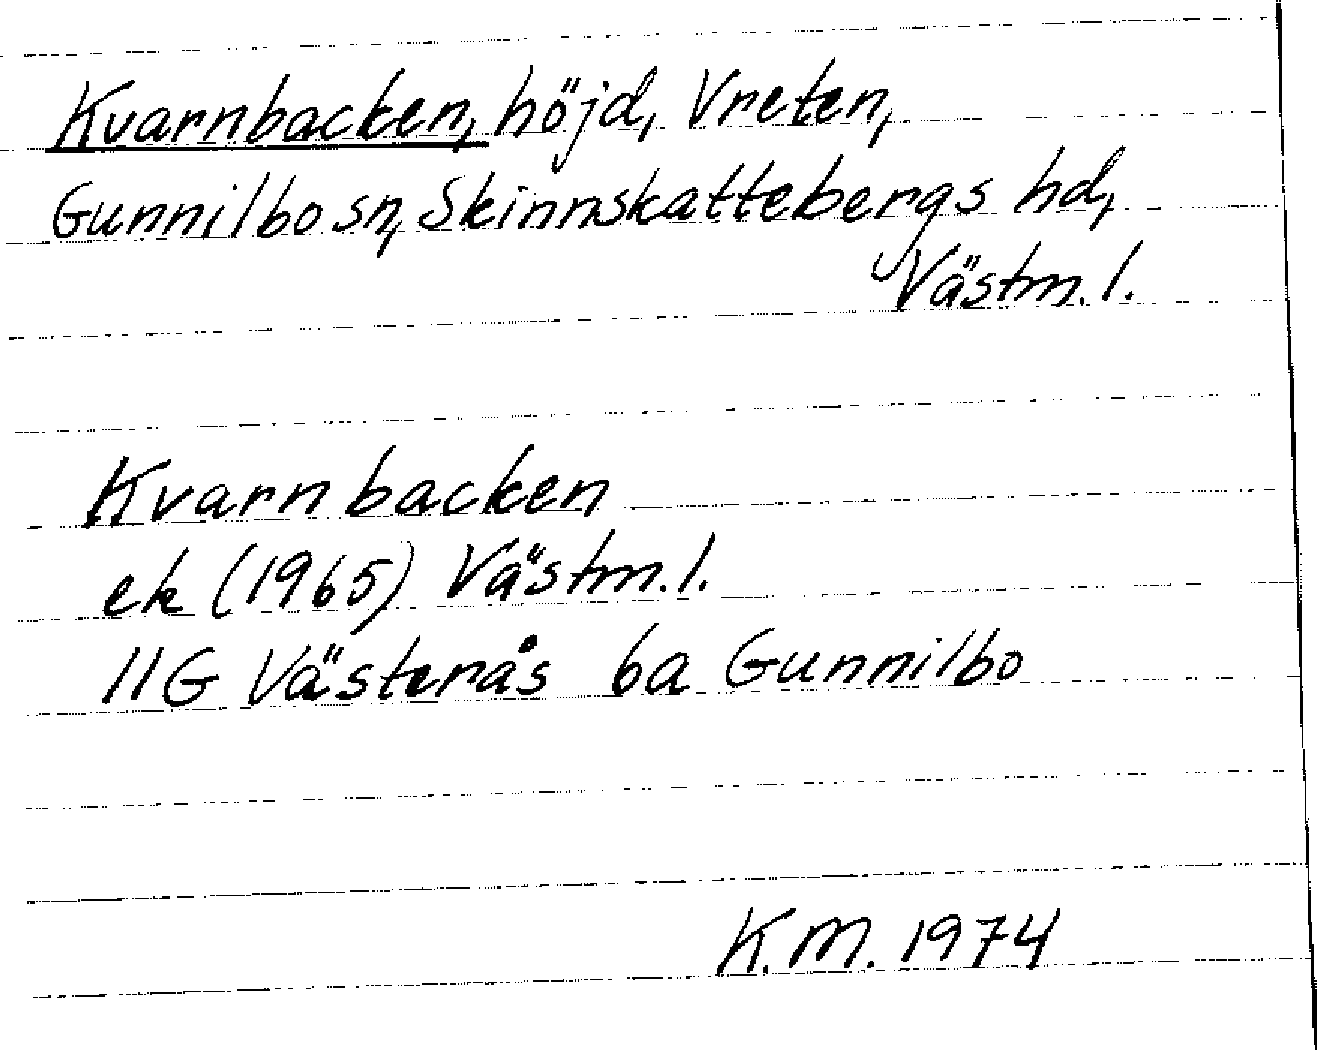 Kvarnbacken, höjd, Vreten,
Gunnilbo sn, Skinnskattebergs hd,
Västm. l.
Kvarnbacken
ek (1965) Västm. l.
11G Västerås 6a Gunnilbo
K.M. 1974